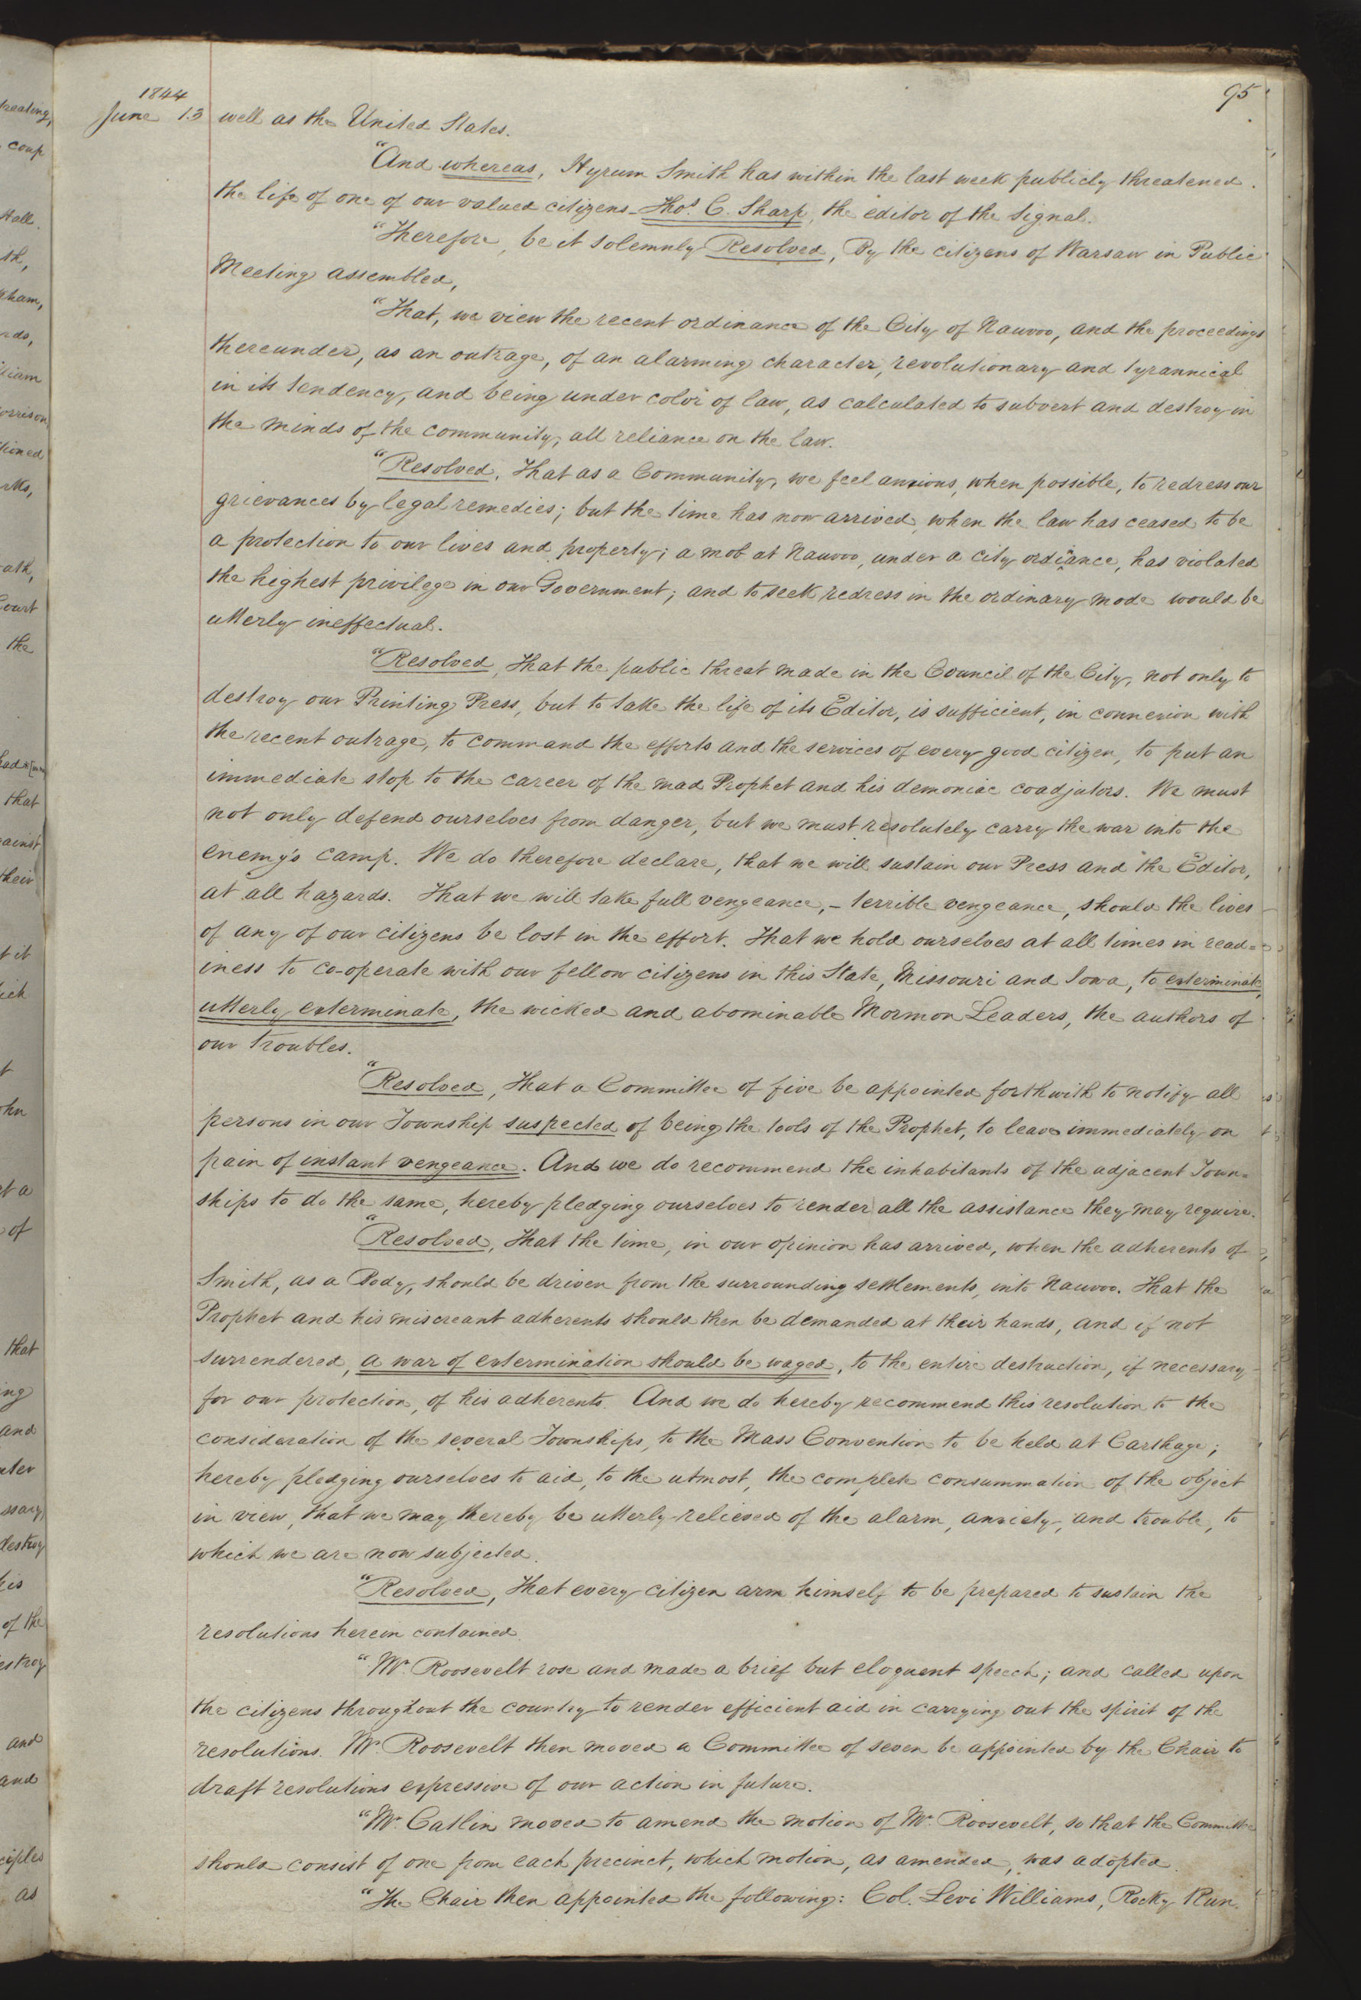 95
1844
June 13 well as the United States.
"And whereas, Hyrum Smith has within the last week publicly threatened
the life of one of our valued citizens – Thos. C. Sharp, the editor of the Signal.
"Therefore, be it solemnly Resolved, By the citizens of Warsaw in Public
Meeting assembled,
"That, we view the recent ordinance of the City of Nauvoo, and the proceedings
thereunder, as an outrage, of an alarming character, revolutionary and tyrannical
in its tendency, and being under color of law, as calculated to subvert and destroy in
the minds of the community, all reliance on the law.
"Resolved, That as a Community, we feel anxious, when possible, to redress our
grievances by legal remedies; but the time has now arrived, when the law has ceased to be
a protection to our lives and property; a mob at Nauvoo, under a city ordinance, has violated
the highest privilege in our Government; and to seek redress in the ordinary mode would be
utterly ineffectual.
"Resolved, That the public threat made in the Council of the City, not only to
destroy our Printing Press, but to take the life of its Editor, is sufficient, in connexion with
the recent outrage, to command the efforts and the services of every good citizen, to put an
immediate stop to the career of the mad Prophet and his demoniac coadjutors. We must
not only defend ourselves from danger, but we must resolutely carry the war into the
enemy's camp. We do therefore declare, that we will sustain our Press and the Editor,
at all hazards. That we will take full vengeance, – terrible vengeance, should the lives
of any of our citizens be lost in the effort. That we hold ourselves at all times in read=
iness to co-operate with our fellow citizens in this State, Missouri and Iowa, to exterminate,
utterly exterminate, the wicked and abominable Mormon Leaders, the authors of
our troubles.
"Resolved, That a Committee of five be appointed forthwith to notify all
persons in our Township suspected of being the tools of the Prophet, to leave immediately on
pain of instant vengeance. And we do recommend the inhabitants of the adjacent Town=
ships to do the same, hereby pledging ourselves to render all the assistance they may require.
"Resolved, That the time, in our opinion has arrived, when the adherents of
Smith, as a Body, should be driven from the surrounding settlements, into Nauvoo. That the
Prophet and his miscreant adherents should then be demanded at their hands, and if not
surrendered, a war of extermination should be waged, to the entire destruction, if necessary
for our protection, of his adherents. And we do hereby recommend this resolution to the
consideration of the several Townships, to the Mass Convention to be held at Carthage;
hereby pledging ourselves to aid, to the utmost, the complete consummation of the object
in view, that we may thereby be utterly relieved of the alarm, anxiety, and trouble, to
which we are now subjected.
"Resolved, That every citizen arm himself to be prepared to sustain the
resolutions herein contained.
"Mr. Roosevelt rose and made a brief but eloquent speech; and called upon
the citizens throughout the country to render efficient aid in carrying out the spirit of the
resolutions. Mr. Roosevelt then moved a Committee of seven be appointed by the Chair to
draft resolutions expressive of our action in future.
"Mr. Catlin moved to amend the motion of Mr. Roosevelt, so that the Committee
should consist of one from each precinct, which motion, as amended, was adopted.
"The Chair then appointed the following: Col. Levi Williams, Rocky Run.